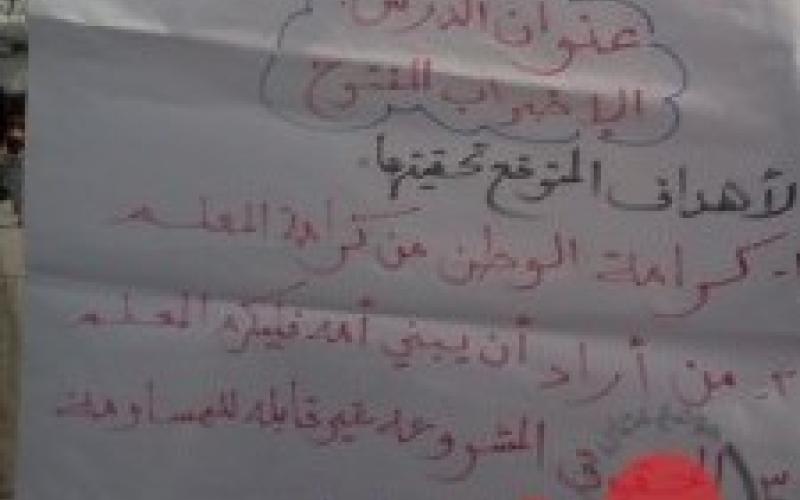 عنوان الدرس:
الإضراب المفتوح
الأهداف المتوقع تحقيقها.
١- كرامة الوطن من كرامة المعلم
٢- من أراد أن يبني أمة فليكرم المعلم
٣- المشروعة غير قابلة للمساومة